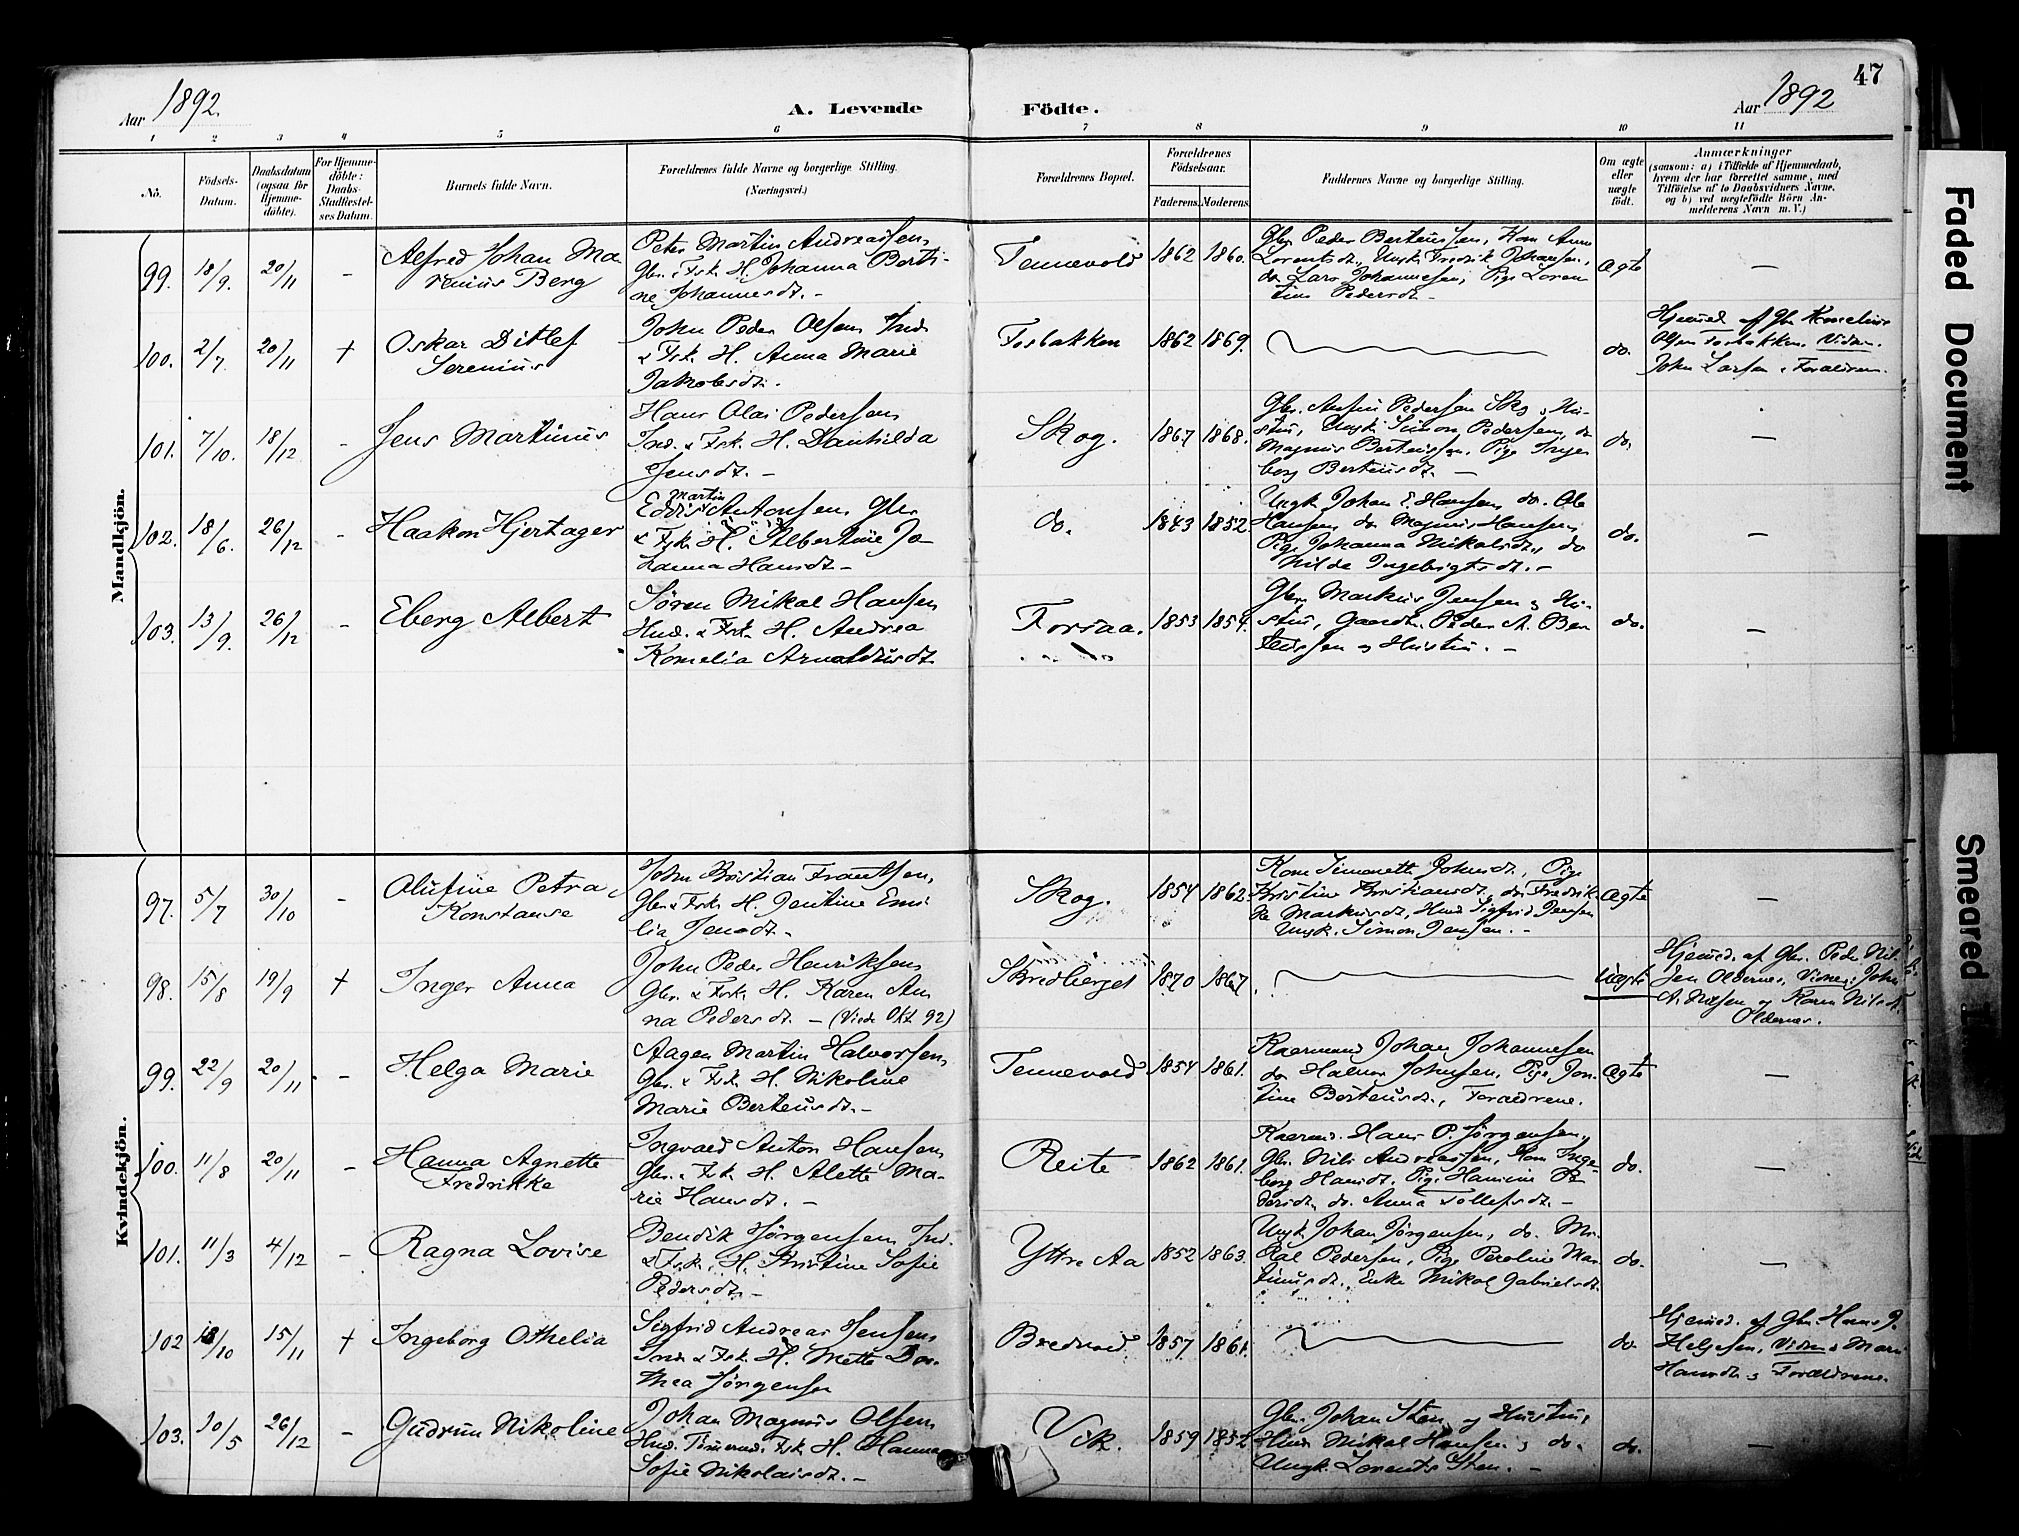 47
Aar 1892.
A. Levende
Födte.
Aar 1892
1 2 3 4 5 6 7 8 9 10 11
No.
Födsels-
Datum.
Daabsdatum
(ogsaa for
Hjemme-
döbte).
For Hjemme-
döbte:
Daabs-
Stadfæstel-
ses Datum.
Barnets fulde Navn.
Forældrenes fulde Navne og borgerlige Stilling.
(Næringsvei.)
Forældrenes Bopæl.
Forældrenes
Födselsaar.
Faderens. Moderens.
Faddernes Navne og borgerlige Stilling.
Om ægte
eller
uægte
født.
Anmærkninger
(saasom: a) i Tilfælde af Hjemmedaab,
hvem der har forrettet samme, med
Tilföielse af to Daabsvidners Navne,
og b) ved uægtefödte Börn An-
melderens Navn m. V.)
Mandkjön.
99. 18/9. 20/11 -
Alfred Johan Ma-
renius Berg
Peter Martin Andreassen,
Gbr. & Fsk. H. Johanna Berti-
ne Johannesdt. -
Tennevold 1862 1860.
Gbr. Peder Berteussen, Kone Anne
Lorentsdt., Ungk. Fredrik Johansen,
do Lars Johannesen, Pige Loren
tine Pedersdt -
Ægte —
100. 2/7. 20/11 +
Oskar Ditlef
Serenius
John Peder Olsen Ind.
& Fsk. H. Anna Marie
Jakobsdt.
Fosbakken 1862 1869.
do.
Hjemmed. af Gbr. Kornelius
Olsen Fosbakken. Vidner.
John Larsen & Forældrene.
101. 7/10. 18/12 -
Jens Martinus
Hans Olai Pedersen
Ind. & Fsk. H. Danhilda
Jensdt. -
Skog. 1867 1868.
Gbr. Pedersen Skog & Hu-
stru, Ungk Simon Pedersen, do
Magnus Berteussen, Pige Inge
borg Berteusdt. -
do. —
102. 18/6. 26/12 -
Haakon Hjertager
Martin
Antonsen Gbr
& Fsk. H. Albertine Jo-
hanna Hansdt -
do. 1843 1852.
Ungk. Johan E. Hansen, do. Ole
Hansen, do Magnus Hansen,
Pige Johanna Nikolsdt., do
Hilda Ingebrigtsdt. -
do. —
103. 13/9. 26/12 -
Eberg Albert
Sören Mikal Hansen
Hmd. & Fsk. H. Andrea
Kornelia Arnoldusdt
Forsaa. 1853 1854.
Gbr. Markus Jensen & Hu-
stru, Gaardm. Peder A. Ber
teussen & Hustru. -
do. —
Kvindekjön.
97. 5/7 30/10 -
Olufine Petra
Konstanse
John Kristian Frantsen,
Gbr. & Fsk. H. Jentine Emi
lia Jensdt -
Skog. 1854 1862
Kone Simonette Johnsdt., Pige
Kristine Kristiansdt, do Fredrik-
ke Markusdt, Hmd Sigfrid Jensen
Ungk. Simon Jensen. -
Ægte —
98. 15/8 19/9 +
Inger Anna
John Peder Henriksen
Gbr. & Fsk. H. Karen An
na Pedersdt. - (Viede Okt 92)
Skredberget 1870 1867.
Uægte
Hjemmed. af Gbr. Peder Nil-
sen Oldernes, Vidner: John
A. Nilsen og Karen Nilsdt
Oldernes.
99. 22/9 20/11. -
Helga Marie
Aagen Martin Halvorsen,
Gbr. & Fsk. H. Nikoline
Marie Berteusdt. -
Tennevold 1854 1861.
Kaarmand Johan Johannesen
do Halvor Johnsen, Pige Jon-
tine Berteusdt., Forældrene.
Ægte —
100. 11/8 20/11 -
Hanna Agnette
Fredrikke
Ingvald Anton Hansen,
Gbr. & Fsk H. Alette Ma-
rie Hansdt. -
Reite 1862 1861.
Kaarmd. Hans P. Jørgensen,
Gbr. Nils Andreassen, Kone Inge-
borg Hansdt. Pige Hansine Pe
dersdt., do. Anna Tollefsdt -
do. —
101. 11/3 4/12 -
Ragna Lovise
Bendik Jørgensen, Ind.
& Fsk, H. Kristine Sofie
Pedersdt. -
Yttre Aa 1852 1863.
Ungk Johan Jørgensen, do. Mi-
kal Pedersen, Pige Peroline Mar
tinusdt. Enke Mikol Gabrielsdt.
do. —
102 18/10 15/11 +
Ingeborg Othelia
Sigfrid Andreas Jensen
Ind. & Fsk. H. Mette Do-
thea Jørgensen
Bredvold 1857 1861.
do.
Hjemmed. af Gbr. Hans P.
Helgesen, Vidner: Marie
Hansdt. & Forældrene.
103. 20/5 26/12 -
Gudrun Nikoline
Johan Magnus Olsen
Hmd. Tömermd. Fsk. H. Hanna
Sofie Nikolaisdt. -
Vik. 1859 1852
Gbr. Johan Sten og Hustru,
Hmd. Mikal Hansen & do.
Ungk. Lorents Sten. -
do. —
Faded Document
Smeared